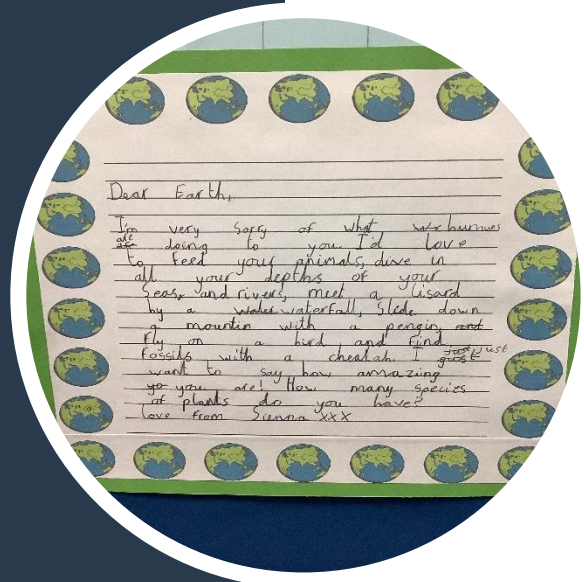 Dear Earth,
I'm very sorry of what we humans
are doing to you I'd love
to feed your animals, dive in
all your depths of your
seas, and rivers, meet a lisard
by a water waterfall, slide down
a mountin with a pengin and
fly on a bird and find
fossils with a cheatah. I just
want to say how amazing
yo you are! How many species
of plants do you have?
love from Sienna xxx